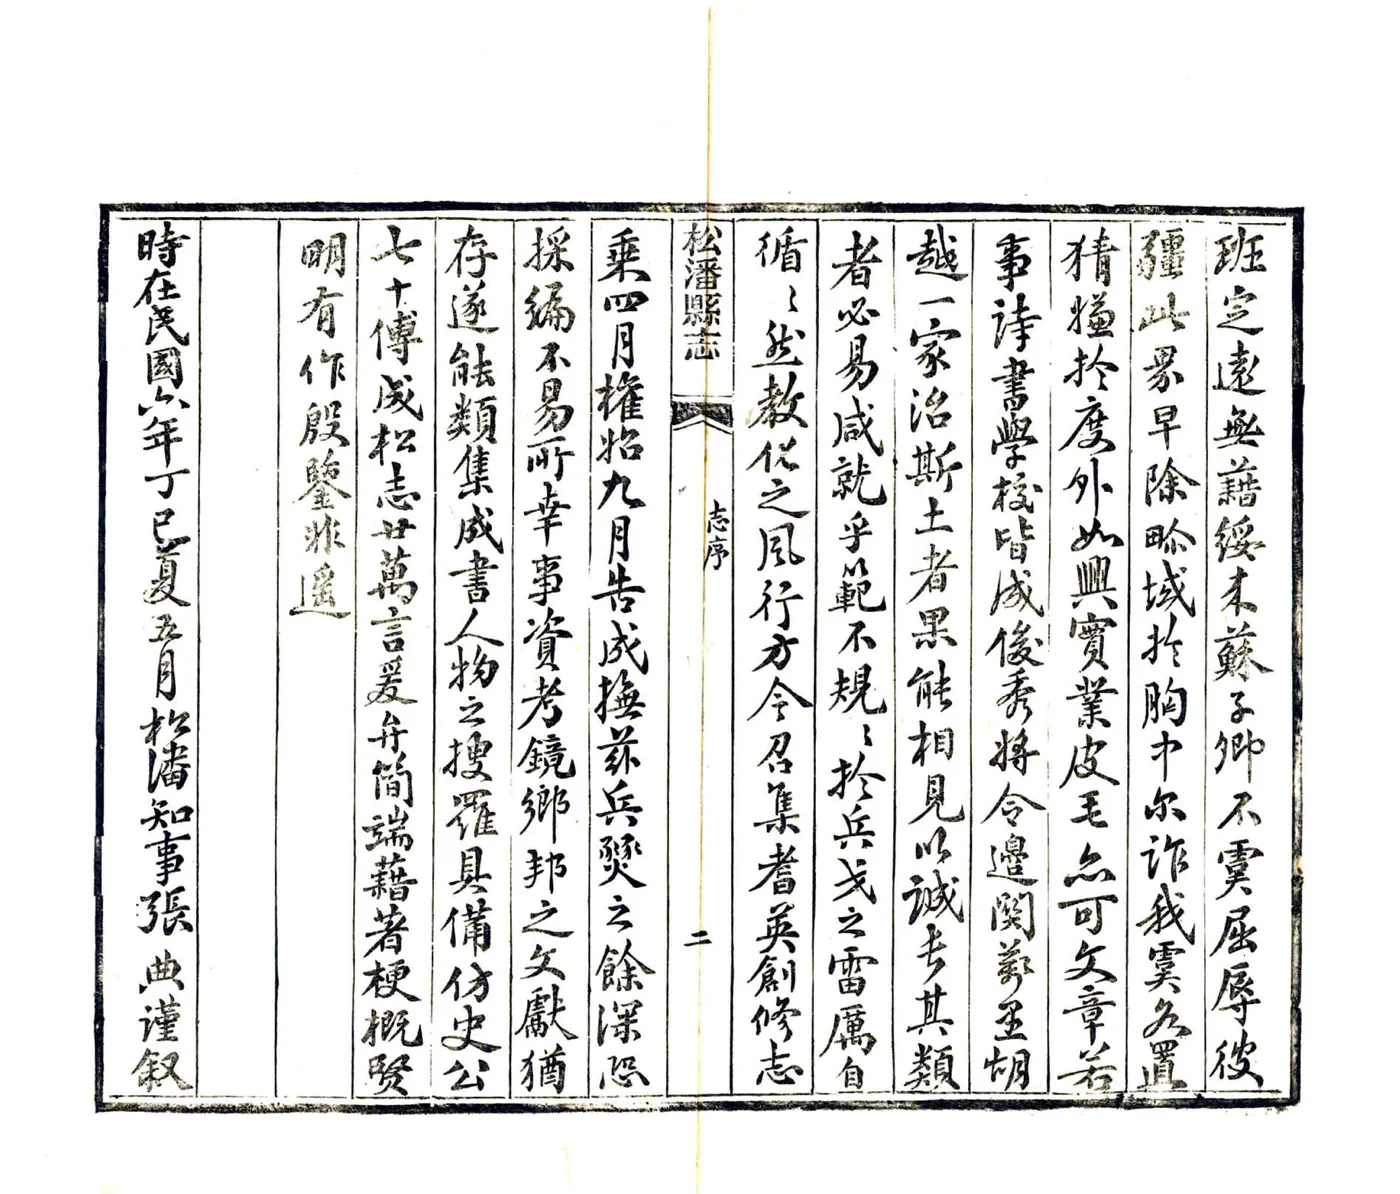 班定遠無藉綏未蘇子卿不虞屈辱彼
疆此界早除畛域於胸中尔詐我虞久置
猜嫌於度外如興實業皮毛亦可文章若
事詩書學校皆成俊秀將令邊関萬里胡
越一家治斯土者果能相見以誠去其類
者必易咸就乎範不規〻於兵戈之雷厲自
循〻然教化之風行方今召集耆英創修志
松潘縣志
志序
二
乗四月権始九月告成撫茲兵燹之餘深恐
採編不易所幸事資考鏡鄉邦之文獻猶
存遂能類集成書人物之搜羅具備仿史公
七十傳成松志廿萬言爰弁簡端藉著梗概賢
明有作殷鑒非遥
時在民國六年丁巳夏五月松潘知事張典謹叙